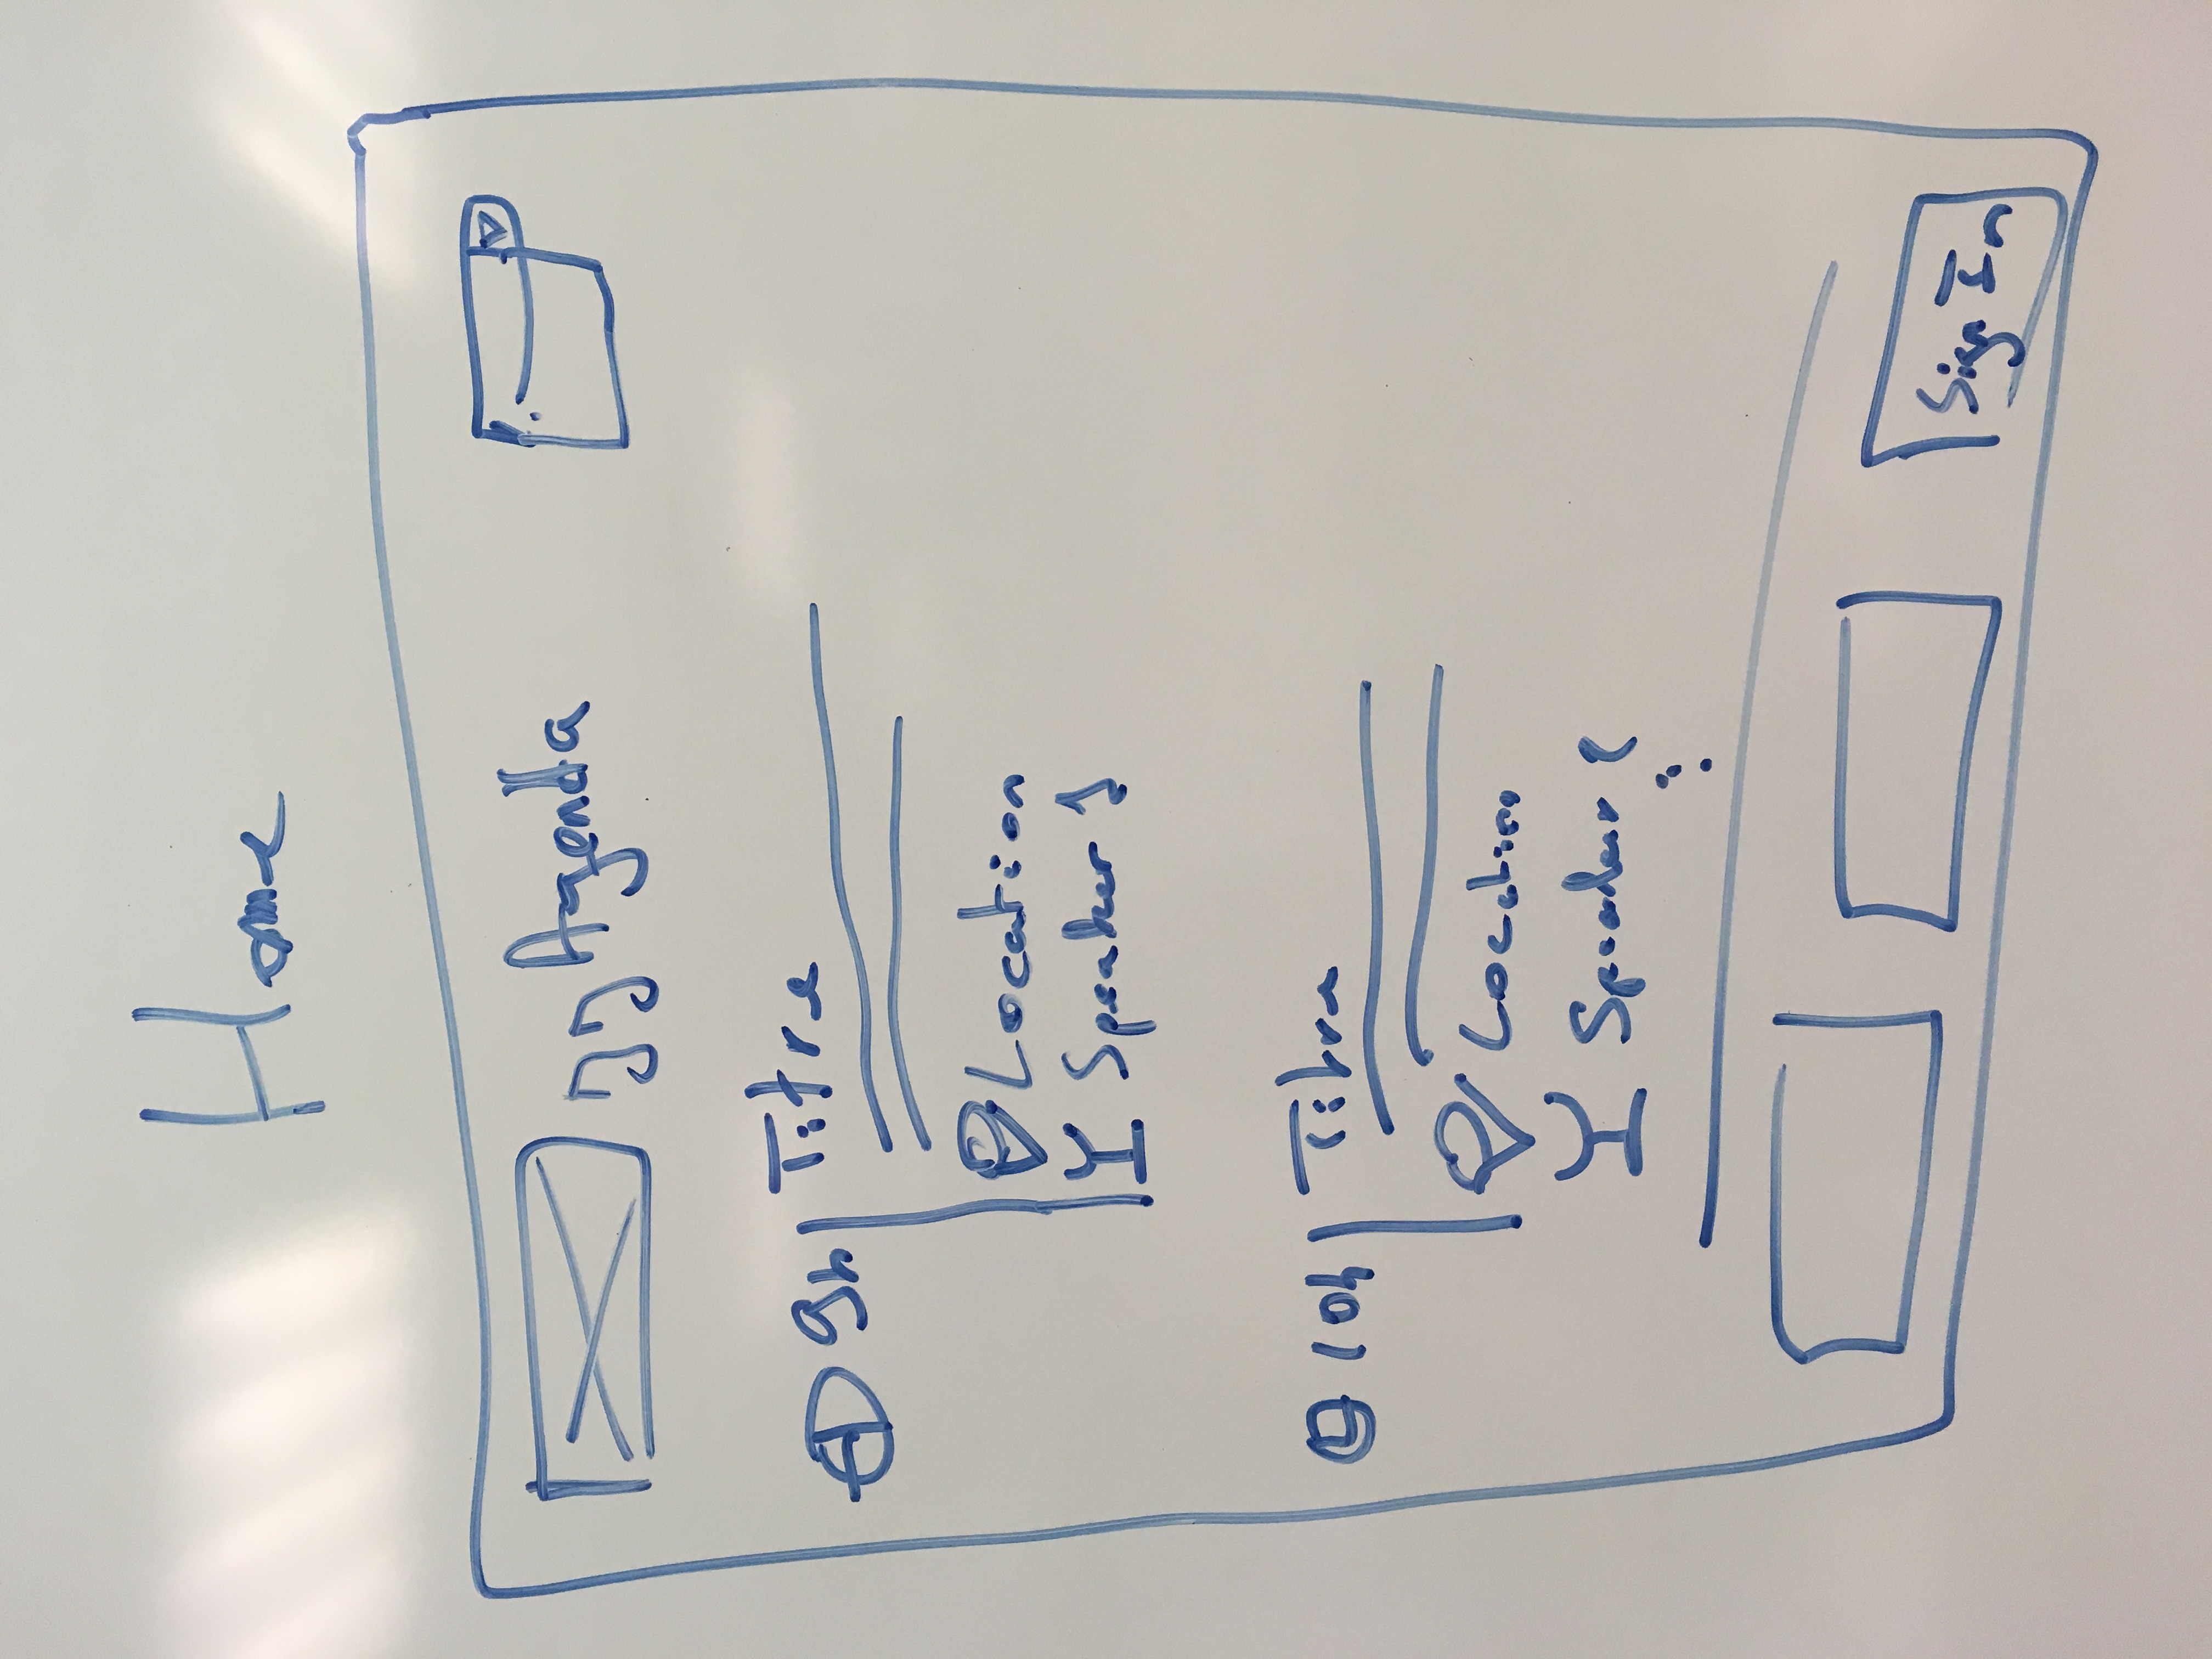 Home
JJ Agenda
9h Titre
Location
Speaker 1
10h Titre
Location
Speaker 2
Sign In